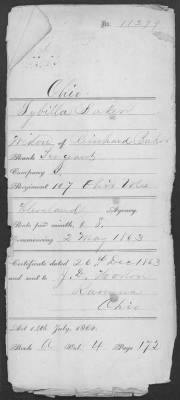 No. 11279
Ohio
Sybilla Baker
Widow of Reinhard Baker
Rank Sergeant
Company
Regiment 107 Ohio Vols
Cleveland Agency.
Rate per month, 8
Commencing 2 May 1863
Certificate dated 26 Dec 1863
and sent to J. D. Horton
Ravenna
Ohio
Act 14th July, 1862.
Book A Vol. 4 Page 172